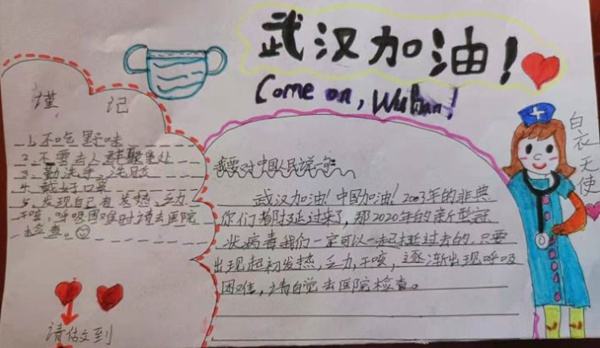 武汉加油!
Come on, Wuhan!
谨记
1、不吃野味
2、不要去人群聚集处
3、勤洗手、洗口
4、戴好口罩
5、发现自己有发热、乏力
干咳,呼吸困难时请去医院
检查。
请做到
我要对中国人民说一
武汉加油!中国加油!2003年的非典
你们都挺过来了,那2020年的新型冠
状病毒我们一定可以一起挺过去的,只要
出现起初发热,乏力,干咳,逐渐出现呼吸
困难,请自觉去医院检查。
白衣天使